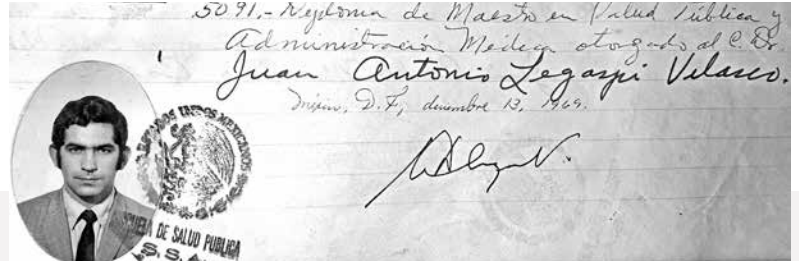 5091.- Diploma de Maestro en Salud Pública y
Administración Médica otorgado al C. Dr.
Juan Antonio Legaspi Velasco.
México, D.F., diciembre 13, 1969.
ESTADOS UNIDOS MEXICANOS
ESCUELA DE SALUD PUBLICA
S.S.A.